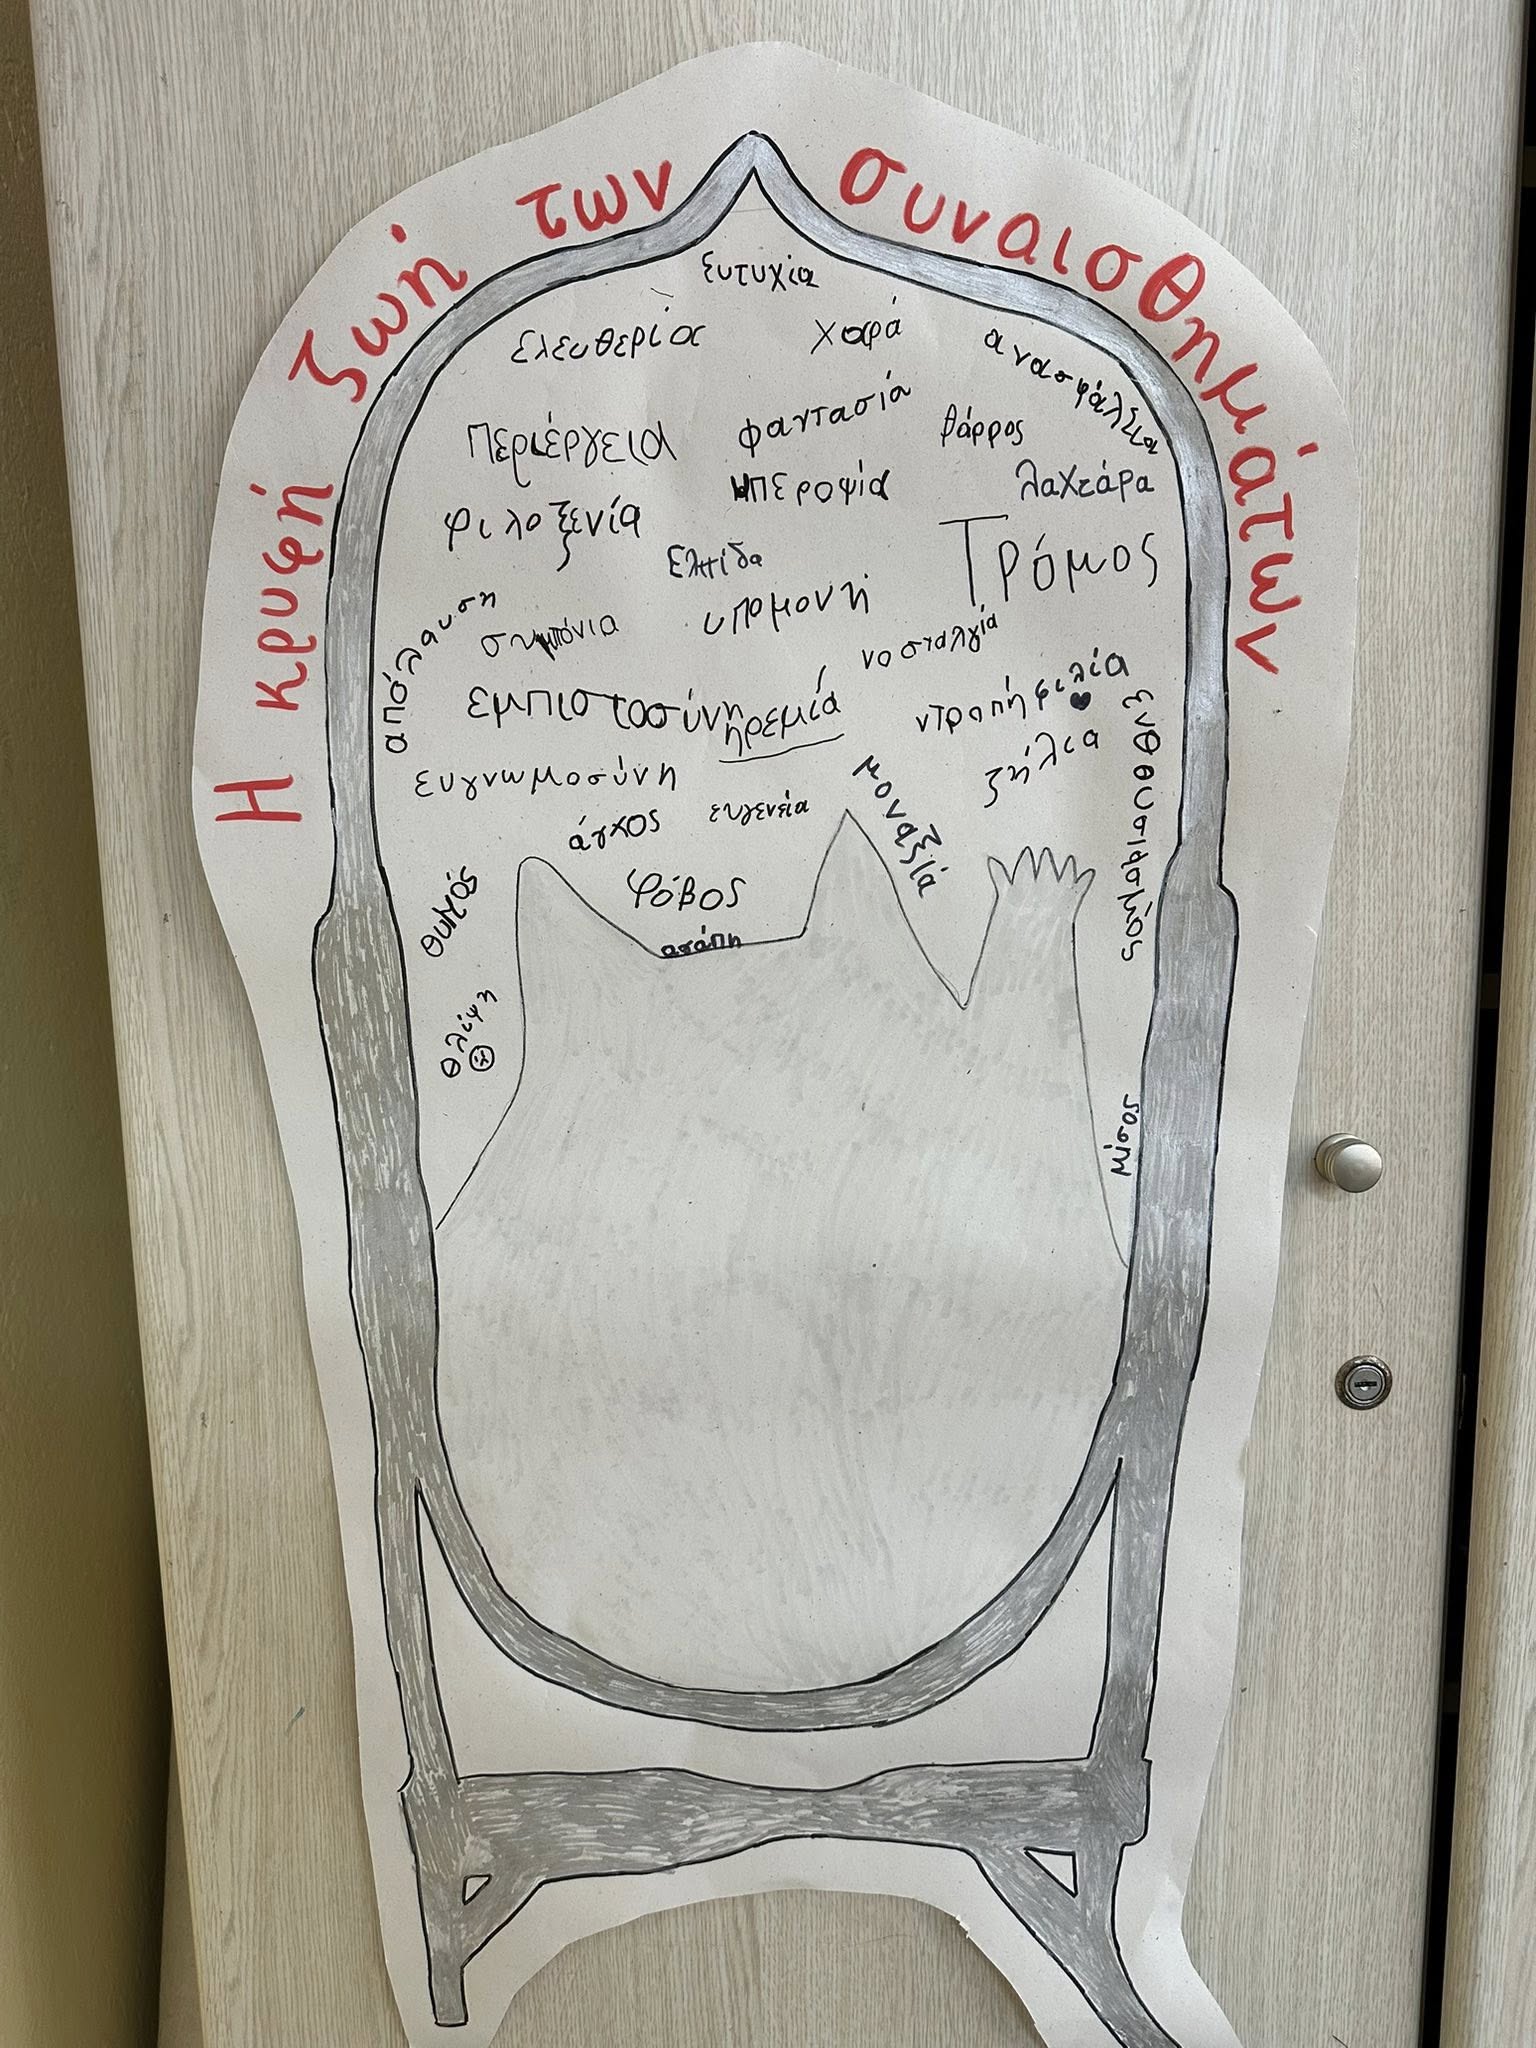 Η κρυφή ζωή των συναισθημάτων
ευτυχία
ελευθερία
χαρά
ανασφάλεια
Περιέργεια
φαντασία
θάρρος
υπεροψία
λαχτάρα
φιλοξενία
Ελπίδα
Τρόμος
απόλαυση
συμπόνια
υπομονή
νοσταλγία
εμπιστοσύνη
ηρεμία
ντροπή
φιλία
ζήλια
ενθουσιασμός
ευγνωμοσύνη
άγχος
ευγενεία
μοναξιά
θυμός
φόβος
αγάπη
θλίψη
μίσος